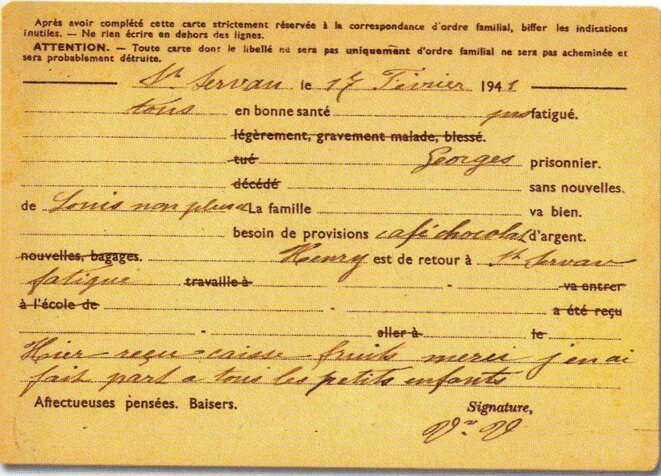 Après avoir complété cette carte strictement réservée à la correspondance d'ordre familial, biffer les indications
inutiles. — Ne rien écrire en dehors des lignes.
ATTENTION. — Toute carte dont le libellé ne sera pas uniquement d'ordre familial ne sera pas acheminée et
sera probablement détruite.
St Servan le 17 Février 1941
tous en bonne santé pas fatigué.
légèrement, gravement malade, blessé.
tué Georges prisonnier.
décédé sans nouvelles.
de Louis non plus La famille va bien.
besoin de provisions café chocolat d'argent.
nouvelles, bagages. Henry est de retour à St Servan
fatigué travaille à va entrer
à l'école de a été reçu
aller à le
Hier reçu caisse fruits merci j'en ai
fait part a tous les petits enfants
Affectueuses pensées. Baisers. Signature,